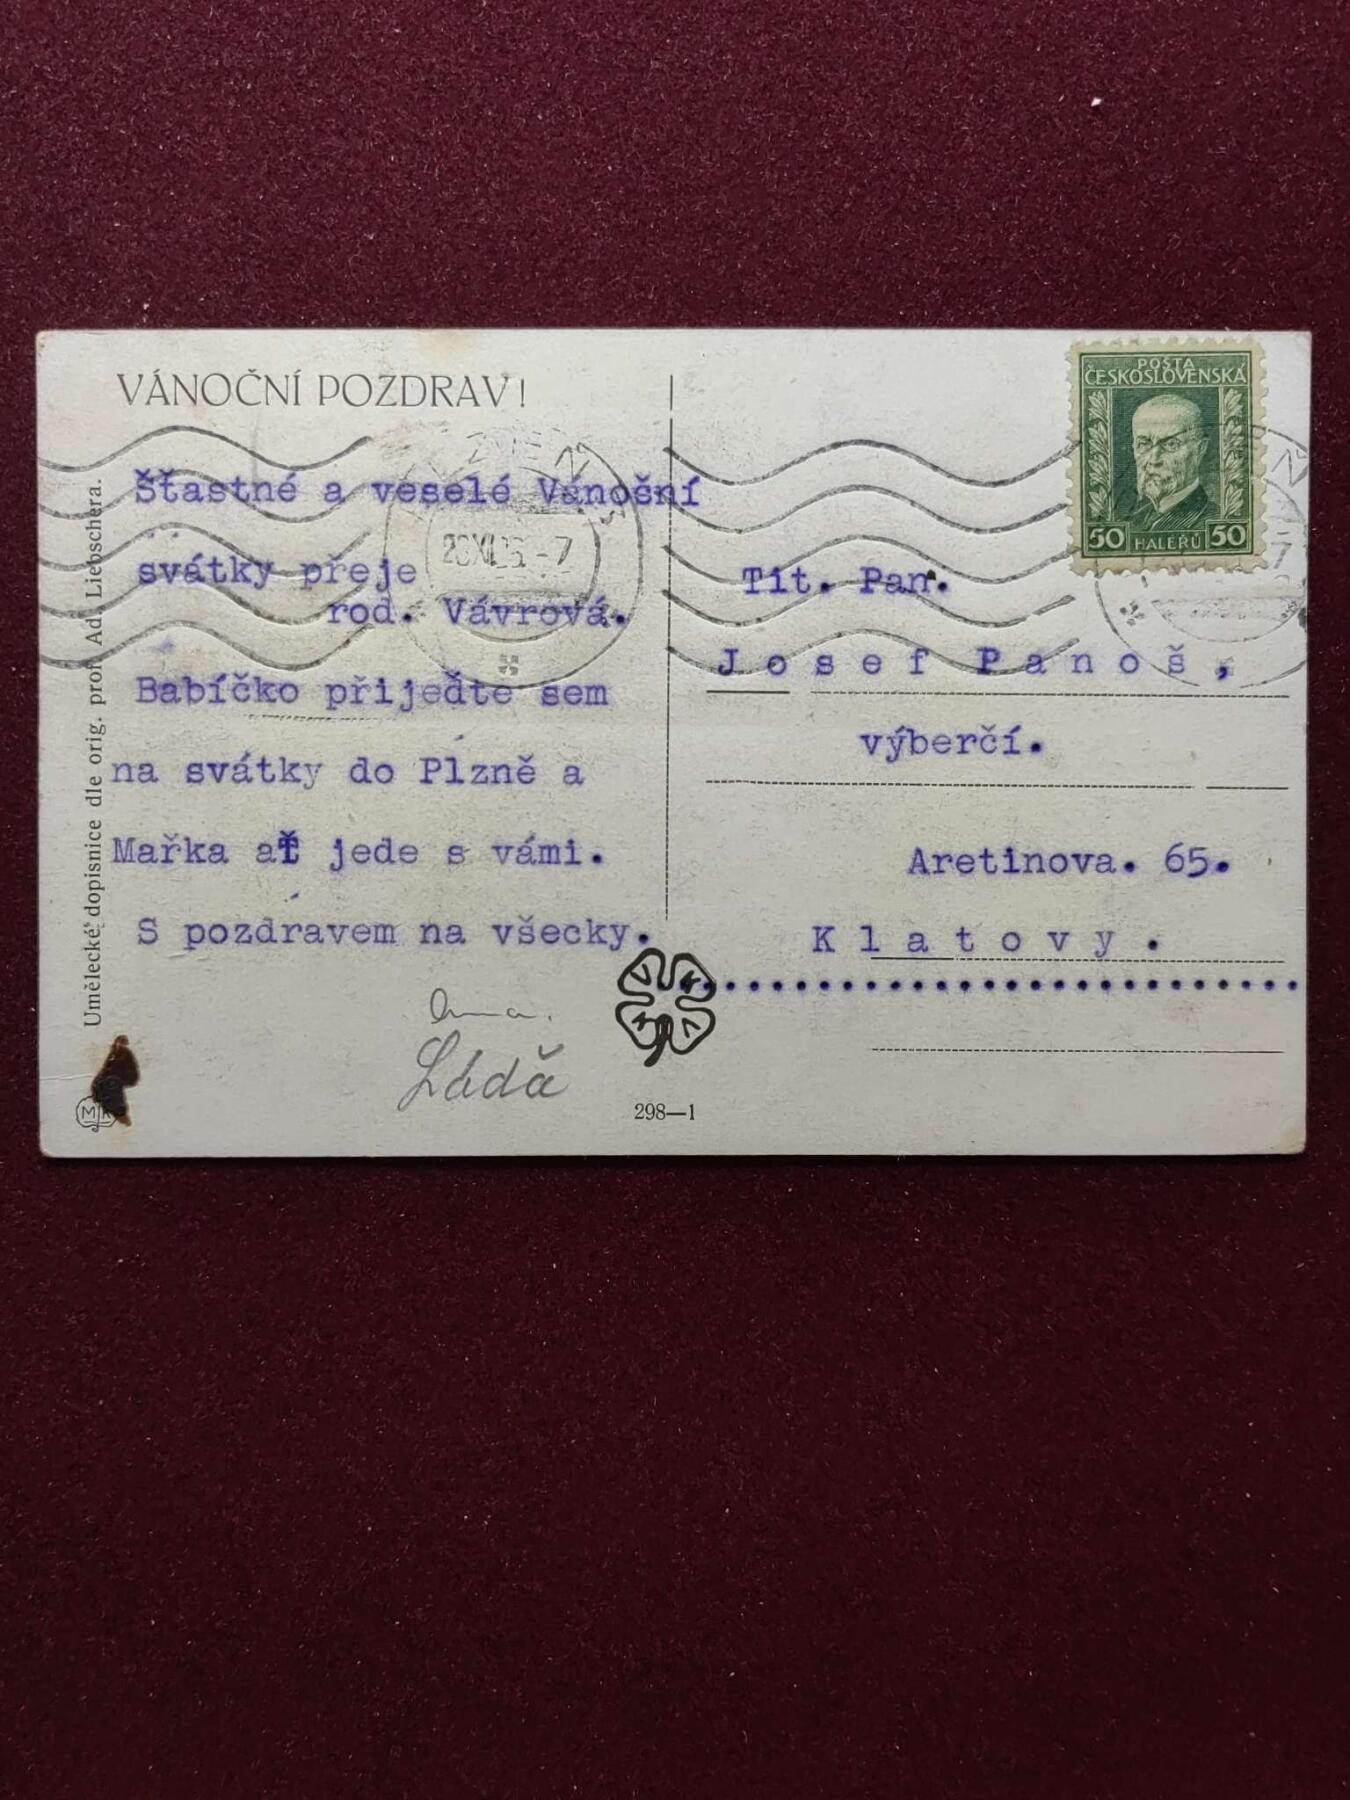 VÁNOČNÍ POZDRAV!
Šťastné a veselé Vánošní
svátky přeje
rod. Vávrová.
Babíčko přijeďte sem
na svátky do Plzně a
Mařka ať jede s vámi.
S pozdravem na všecky.
Láďa
Umělecké dopisnice dle orig. prof. Ad. Liebschera.
298—1
POŠTA
ČESKOSLOVENSKÁ
50 HALÉŘŮ 50
Tit. Pan.
Josef Panoš,
výberčí.
Aretinova. 65.
Klatovy.